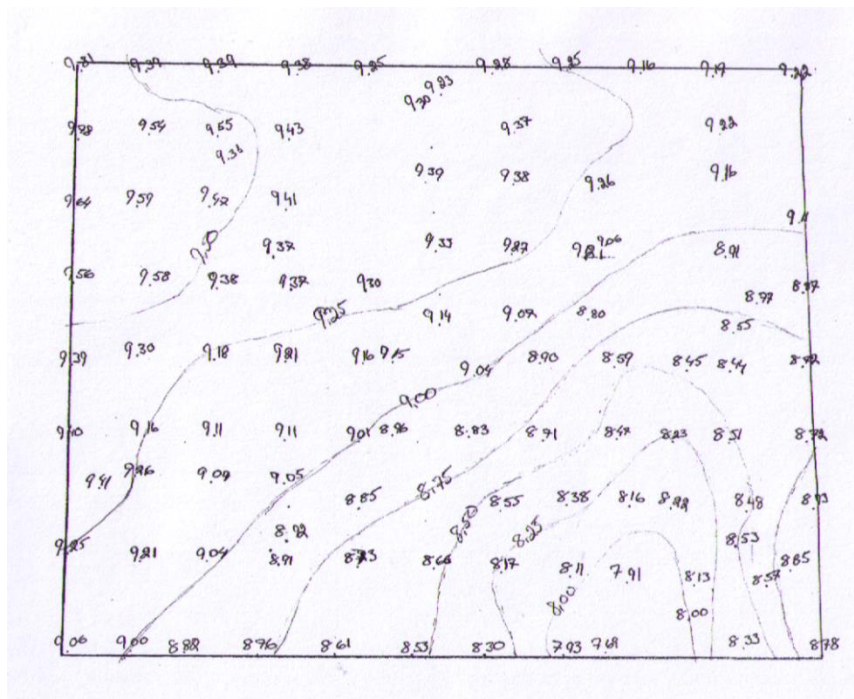 9.31 9.39 9.39 9.38 9.25 9.28 9.25 9.16 9.19 9.22
9.23
9.30
9.54 9.55 9.43 9.37 9.22
9.33
9.39 9.38 9.26 9.16
9.64 9.59 9.42 9.41
9.11
9.50
9.37 9.33 9.27 9.06 8.91
9.56 9.58 9.38 9.37 9.20 8.97
9.25 9.14 9.07 8.80 8.55
9.39 9.30 9.18 9.21 9.16 9.15 9.04 8.90 8.59 8.45 8.44
9.00
9.16 9.11 9.11 9.01 8.96 8.83 8.71 8.47 8.23 8.51 8.72
9.41 9.26 9.09 9.05
8.75
8.85 8.55 8.38 8.16 8.22 8.48 8.93
8.50
8.92 8.25 8.53
9.25 9.21 9.04 8.91 8.66 8.17 8.11 7.91 8.13 8.57 8.65
8.00 8.00
9.06 9.00 8.88 8.76 8.61 8.53 8.30 7.93 7.68 8.33 8.78